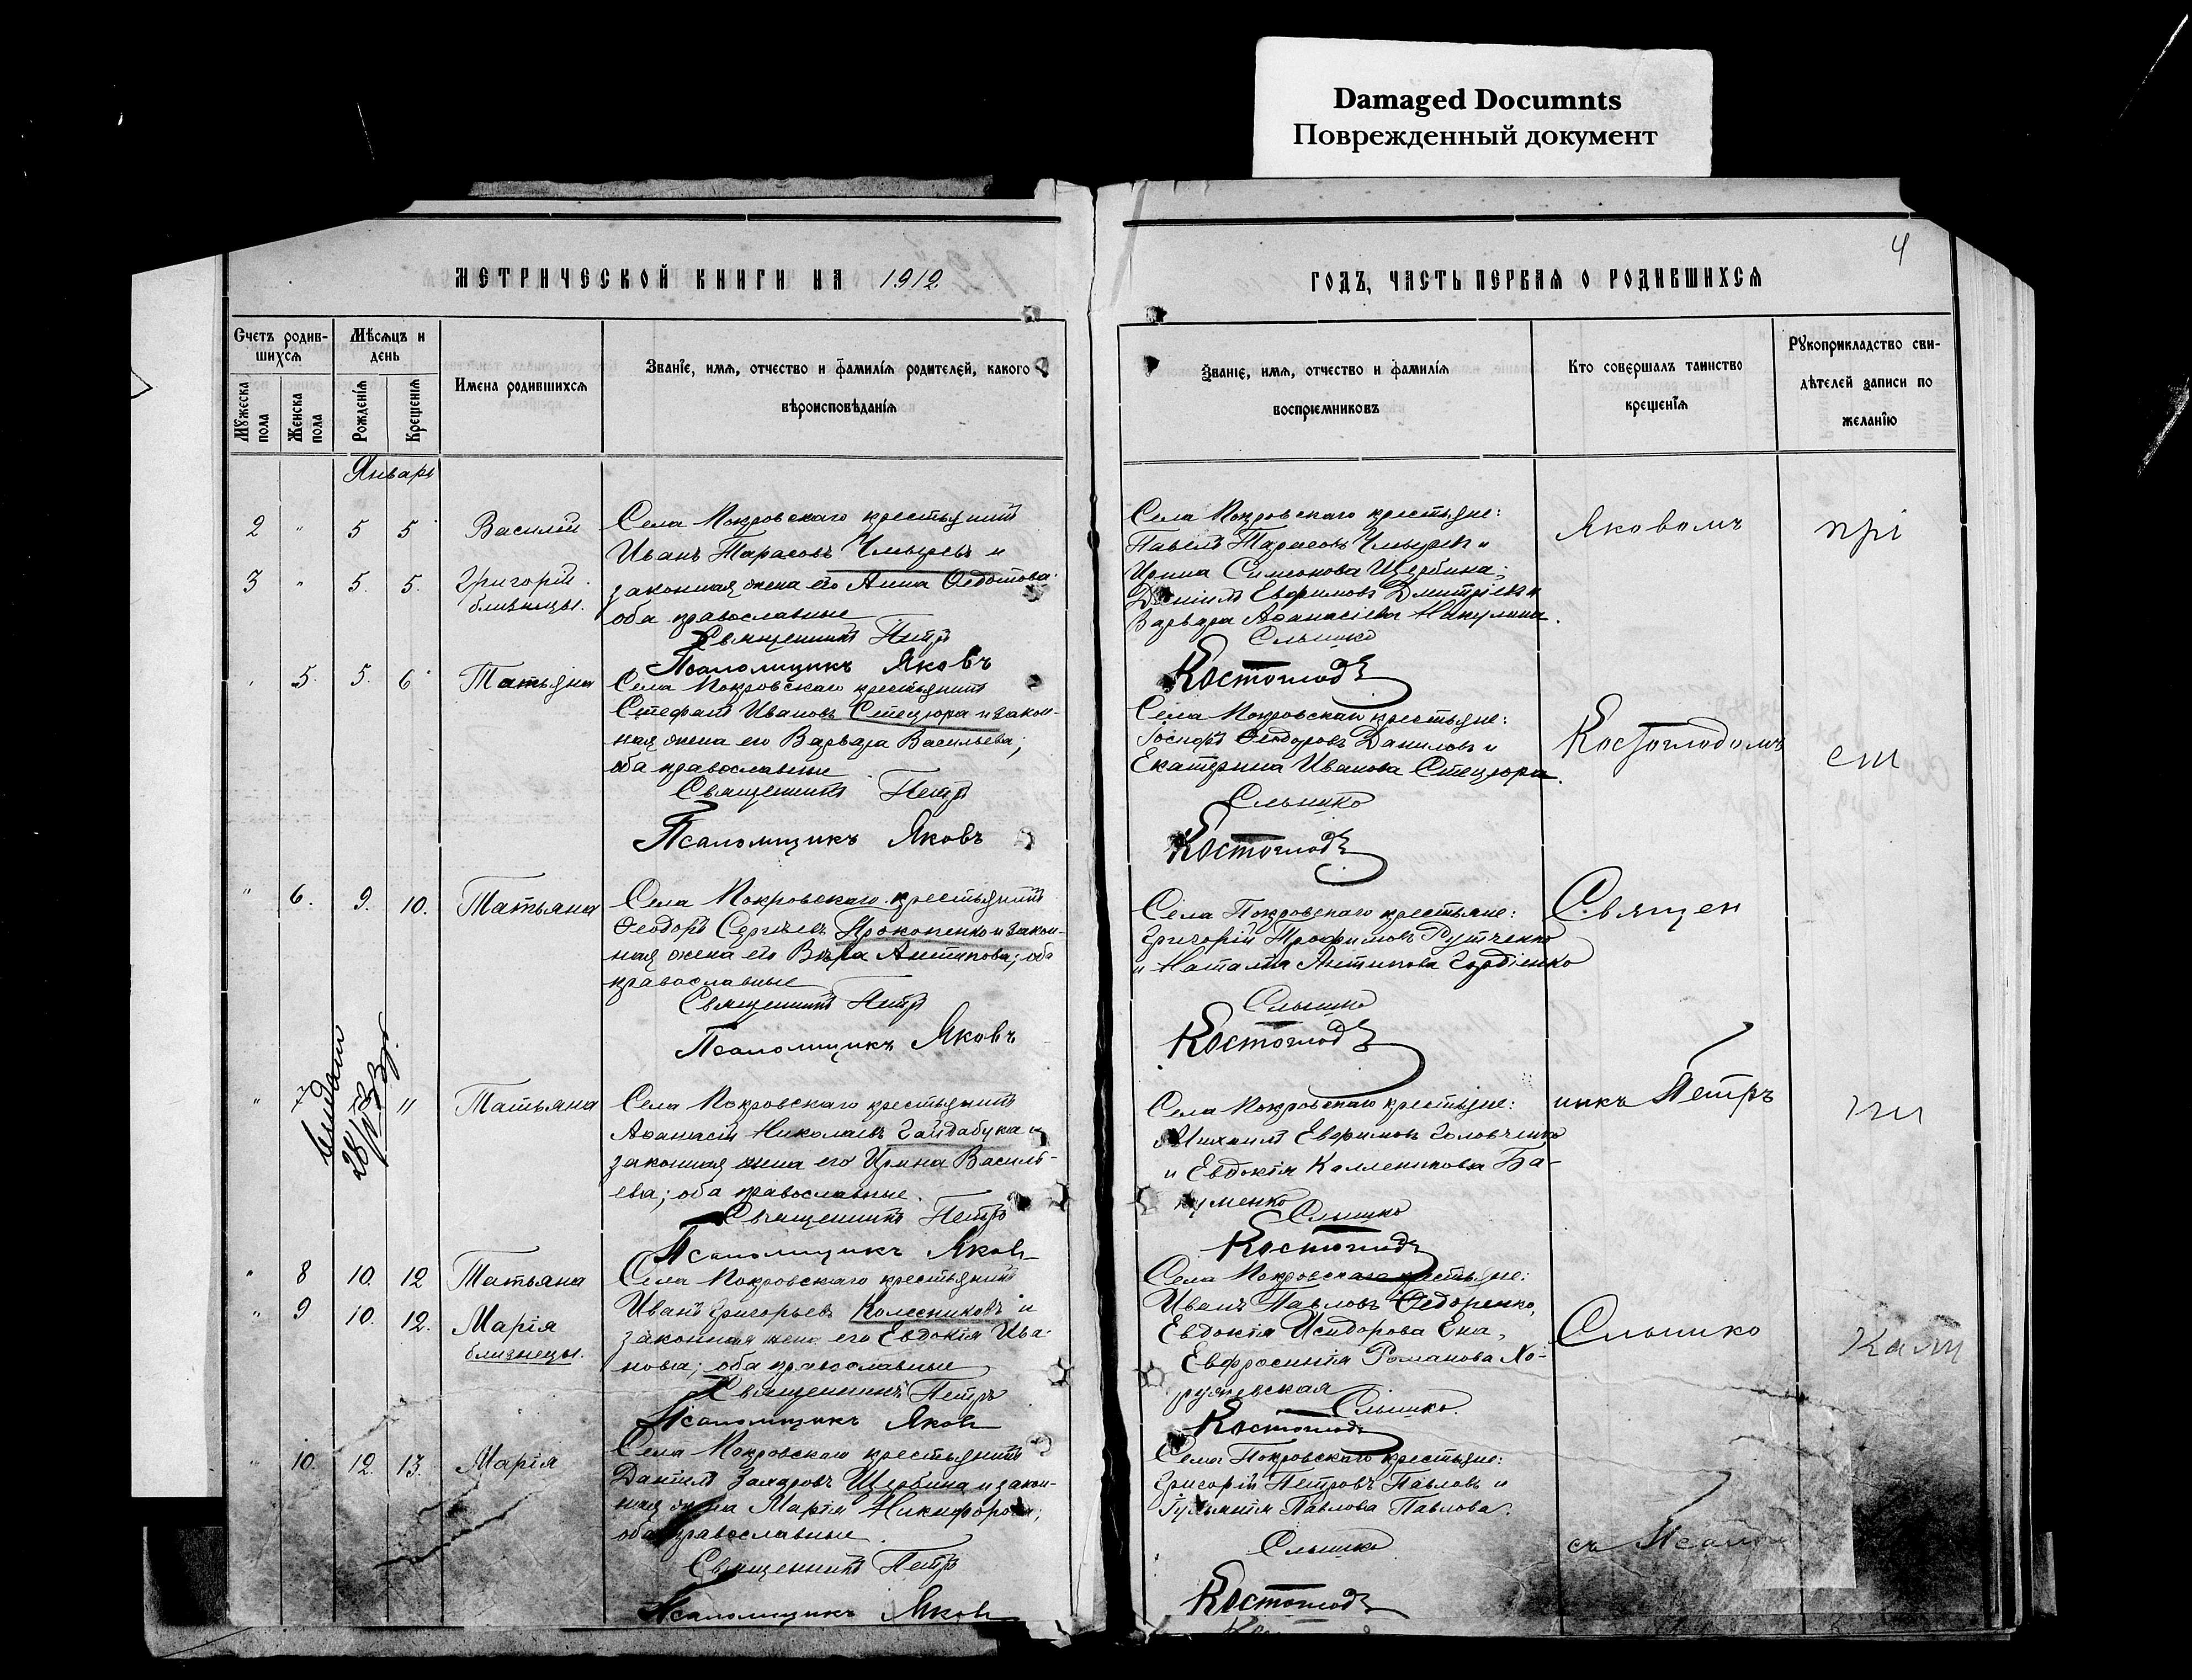 Damaged Documnts
Поврежденный документ
4
МЕТРИЧЕСКОЙ КНИГИ НА 1912
ГОДЪ, ЧАСТЬ ПЕРВАЯ О РОДИВШИХСЯ
Счетъ родив-
шихся
Мужеска пола
Женска пола
Мѣсяцъ и
день
Рожденія
Крещенія
Имена родившихся
Званіе, имя, отчество и фамилія родителей, какого
вѣроисповѣданія
Званіе, имя, отчество и фамилія
воспріемниковъ
Кто совершалъ таинство
крещенія
Рукоприкладство сви-
дѣтелей записи по
желанію
Январь
2 " 5 5 Василій
3 " 5. 5. Григорій
близнецы.
Села Покровскаго крестьянинъ
Иванъ Тарасовъ Чмыревъ и
законная жена его Анна Федотова
оба православные
Священникъ Петръ
Псаломщикъ Яковъ
Села Покровскаго крестьяне:
Павелъ Тарасовъ Чмыревъ и
Ирина Симеонова Щербина;
Даніилъ Евфимовъ Дмитріевъ и
Варвара Афанасіева Никулина.
Слышко
Костоглодъ
Яковомъ
при
" 5. 5. 6 Татьяна
Села Покровскаго крестьянинъ
Стефанъ Ивановъ Стецюра и закон-
ная жена его Варвара Васильева;
оба православные
Священникъ Петръ
Псаломщикъ Яковъ
Села Покровскаго крестьяне:
Іосифъ Феодоровъ Даниловъ и
Екатерина Иванова Стецюра.
Слышко
Костоглодъ
Костоглодомъ
" 6. 9. 10. Татьяна
Села Покровскаго крестьянинъ
Феодоръ Сергѣевъ Прокопенко и закон-
ная жена его Вѣра Антипова; оба
православные
Священникъ Петръ
Псаломщикъ Яковъ
Села Покровскаго крестьяне:
Григорій Трофимовъ Рутченко
и Наталія Антипова Гордіенко
Слышко
Костоглодъ
Священ
" 7 11 Татьяна
Села Покровскаго крестьянинъ
Афанасій Николаевъ Гайдабука и
законная жена его Ирина Василь-
ева; оба православные.
Священникъ Петръ
Псаломщикъ Яковъ
Села Покровскаго крестьяне:
Михаилъ Евфимовъ Головченко
и Евдокія Каллиникова Ба-
куменко
Слышко
Костоглодъ
никъ Петръ
" 8 10. 12 Татьяна
" 9 10. 12. Марія
близнецы.
Села Покровскаго крестьянинъ
Иванъ Григорьевъ Колесниковъ и
законная жена его Евдокія Ива-
нова; оба православные
Священникъ Петръ
Псаломщикъ Яковъ
Села Покровскаго крестьяне:
Иванъ Павловъ Федоренко,
Евдокія Исидорова
Евфросинія Романова Хо-
Слышко.
Костоглодъ
Слышко
" 10. 12. 13. Марія
Села Покровскаго крестьянинъ
Даніилъ Захаровъ Щербина и закон-
ная жена Марія Никифорова;
оба православные.
Священникъ Петръ
Псаломщикъ Яковъ
Села Покровскаго крестьяне:
Григорій Петровъ Павловъ и
Павлова Павлова.
Слышко
Костоглодъ
съ Псалом